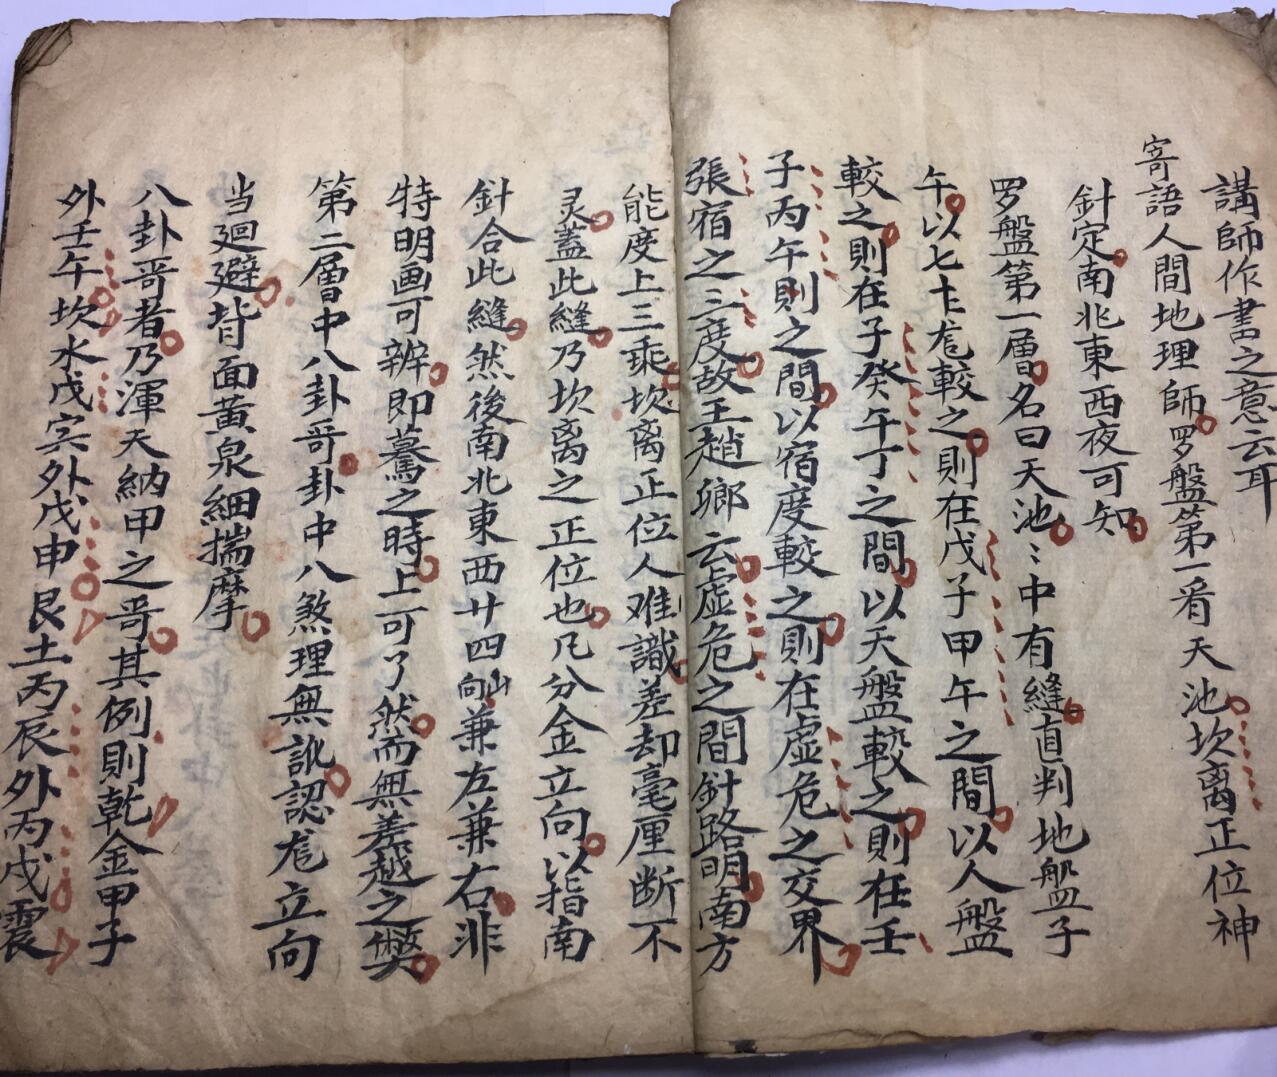 講師作書之意云耳
寄語人間地理師罗盤第一看天池坎离正位神
針定南北東西夜可知
罗盤第一層名曰天池〻中有縫直判地盤子
午以七十龙較之則在戊子甲午之間以人盤
較之則在子癸午丁之間以天盤較之則在壬
子丙午則之間以宿度較之則在虚危之交界
張宿之三度故王趙卿云虚危之間針路明南方
能度上三乘坎离正位人难識差却毫厘断不
灵蓋此縫乃坎离之正位也凡分金立向以指南
針合此縫然後南北東西廿四山向兼左兼右非
特明画可辨即驀之時上可了然而無差越之弊
第二層中八卦哥卦中八煞理無訛認龙立向
当廻避背面黄泉細揣摩
八卦哥者乃渾天納甲之哥其例則乾金甲子
外壬午坎水戊寅外戊申艮土丙辰外丙戌震